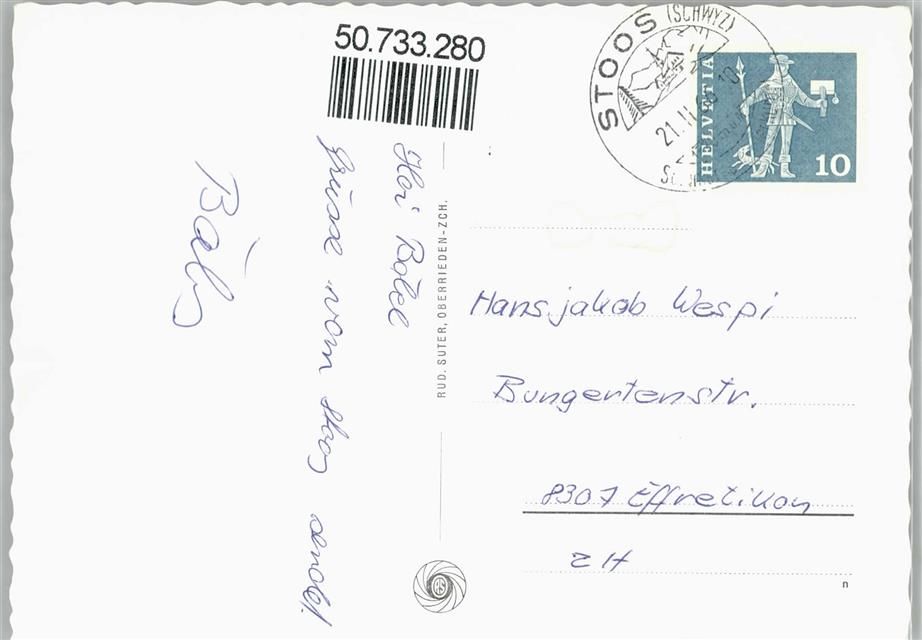 50.733.280
STOOS (SCHWYZ)
21.II.
HELVETIA
10
Hoi Bäbel
Grüsse vom Stoos sendet
Bäbs
RUD. SUTER, OBERRIEDEN-ZCH.
Hansjakob Wespi
Bungertenstr.
8307 Effretikon
ZH
n